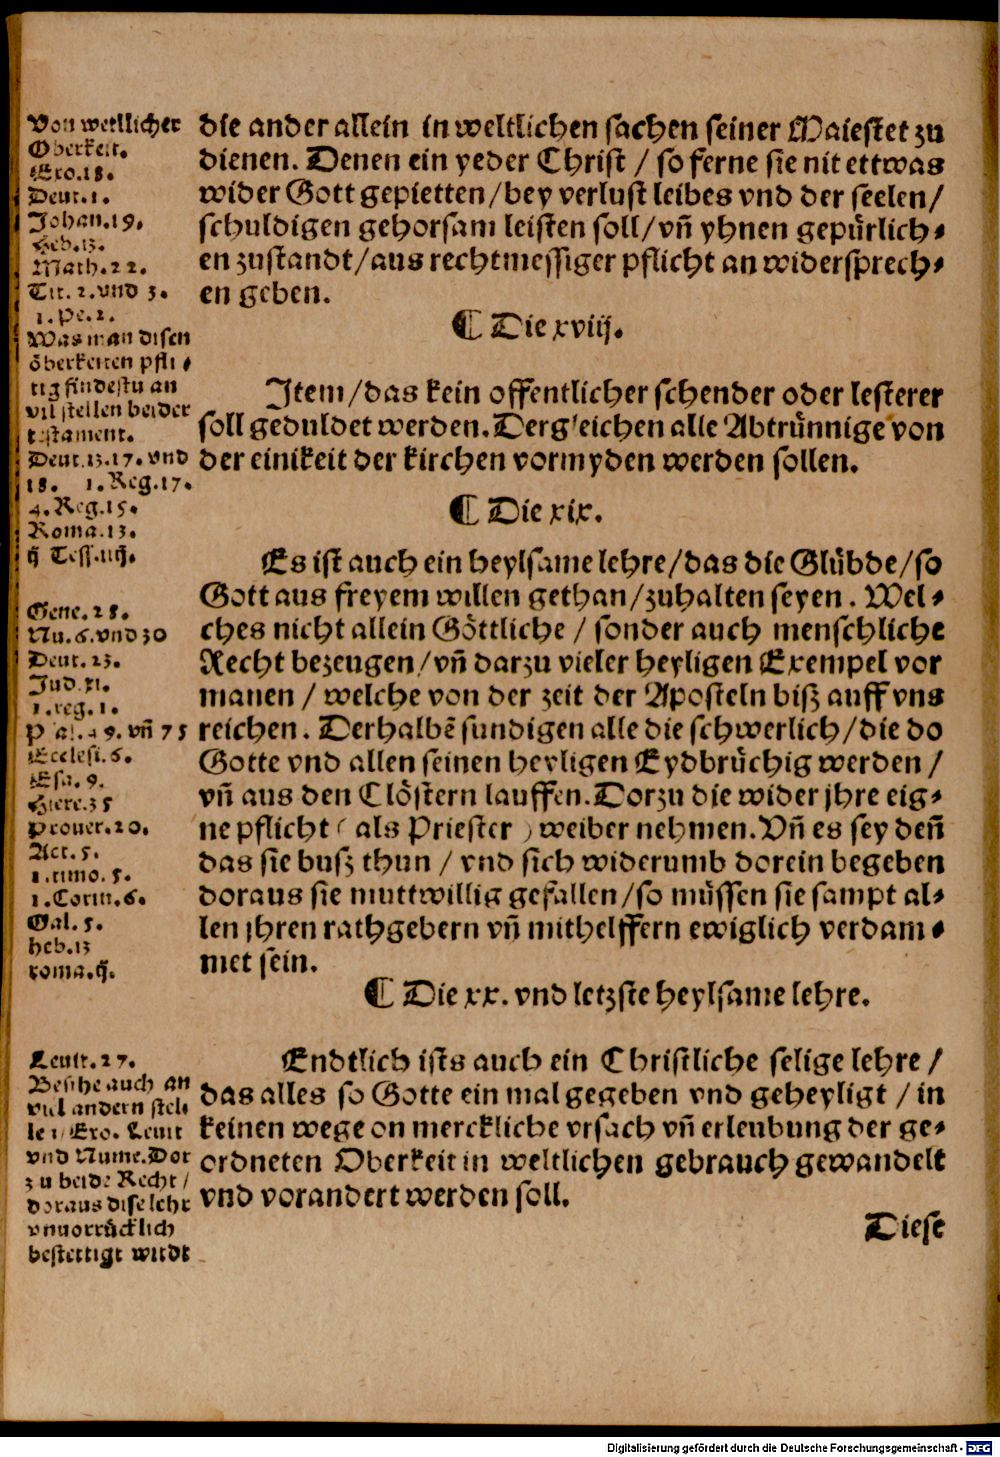 die ander allein in weltlichen sachen seiner Maiestet zu
dienen. Denen ein yeder Christ / so ferne sie nit ettwas
wider Gott gepietten / bey verlust leibes vnd der seelen /
schuldigen gehorsam leisten soll / vn̄ yhnen gepürlich⸗
en zustandt / aus rechtmessiger pflicht an widersprech⸗
en geben.
¶ Die xviij.
Item / das kein offentlicher schender oder lesterer
soll geduldet werden. Dergleichen alle Abtrünnige von
der einikeit der kirchen vormyden werden sollen.
¶ Die xix.
Es ist auch ein heylsame lehre / das die Glübde / so
Gott aus freyem willen gethan / zuhalten seyen. Wel⸗
ches nicht allein Göttliche / sonder auch menschliche
Recht bezeugen / vn̄ darzu vieler heyligen Exempel vor
manen / welche von der zeit der Aposteln biß auff vns
reichen. Derhalbē sundigen alle die schwerlich / die do
Gotte vnd allen seinen heyligen Eydbrüchig werden /
vn̄ aus den Clöstern lauffen. Dorzu die wider jhre eig⸗
ne pflicht ( als Priester ) weiber nehmen. Vn̄ es sey den̄
das sie busz thun / vnd sich widerumb dorein begeben
doraus sie muttwillig gefallen / so müssen sie sampt al⸗
len jhren rathgebern vn̄ mithelffern ewiglich verdam⸗
met sein.
¶ Die xx. vnd letzste heylsame lehre.
Endtlich ists auch ein Christliche selige lehre /
das alles so Gotte ein mal gegeben vnd geheyligt / in
keinen wege on merckliche vrsach vn̄ erleubung der ge⸗
ordneten Oberkeit in weltlichen gebrauch gewandelt
vnd vorandert werden soll.
Diese
Von weltlicher
Oberkeit.
Exo.18.
Deut.1.
Johan.19.
Heb.13.
Math.22.
Tit. 2. vnd 3.
1.Pe.2.
Was man disen
öberkeiten pfli⸗
tig findestu an
vil stellen beider
testament.
Deut.13.17. vnd
18. 1.Reg.17.
4.Reg.15.
Roma.13.
Gene.28.
Nu.6. vnd 30
Deut.23.
Jud.xi.
1.reg.1.
vn̄ 75
Ecclesi.5.
Esa.9.
Hiere.35
Prouer.20.
Act.5.
1.timo.5.
1.Corin.6.
Gal.5.
heb.13
roma.ij.
Leuit.27.
Besihe auch an
viel andern stel⸗
len / Exo. Leuit
vnd Nume. Dor
zu beide Recht /
doraus dise lehr
vnuorrücklich
bestettigt wirdt
Digitalisierung gefördert durch die Deutsche Forschungsgemeinschaft - DFG